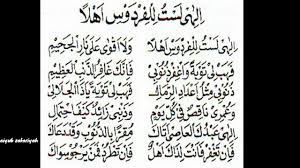 اِلٰهِي لَسْتُ لِلْفِرْدَوْسِ اَهْلًا
اِلٰهِي لَسْتُ لِلْفِرْدَوْسِ اَهْلًا وَلَا اَقْوٰى عَلَى نَارِ الْجَحِيْمِ
فَهَبْ لِي تَوْبَةً وَاغْفِرْ ذُنُوْبِي فَاِنَّكَ غَافِرُ الذَّنْبِ الْعَظِيْمِ
ذُنُوْبِي مِثْلُ اَعْدَادِ الرِّمَالِ فَهَبْ لِي تَوْبَةً يَاذَا الْجَلَالِ
وَعُمْرِي نَاقِصٌ فِي كُلِّ يَوْمٍ وَذَنْبِي زَائِدٌ كَيْفَ احْتِمَالِ
اِلٰهِي عَبْدُكَ الْعَاصِي اَتَاكَ مُقِرًّا بِالذُّنُوْبِ وَقَدْ دَعَاكَ
فَاِنْ تَغْفِرْ فَاَنْتَ لِذَاكَ اَهْلٌ فَاِنْ تَطْرُدْ فَمَنْ نَرْجُوْ سِوَاكَ